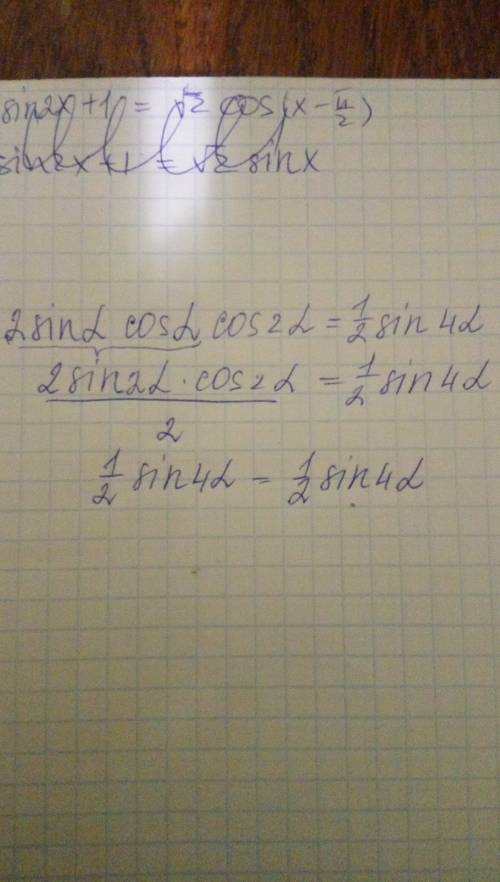 sin2x + 1 = √2 cos(x - π/2)
sin2x + 1 = √2 sinx
2sinα cosα cos2α = 1/2 sin4α
2sin2α · cos2α / 2 = 1/2 sin4α
1/2 sin4α = 1/2 sin4α